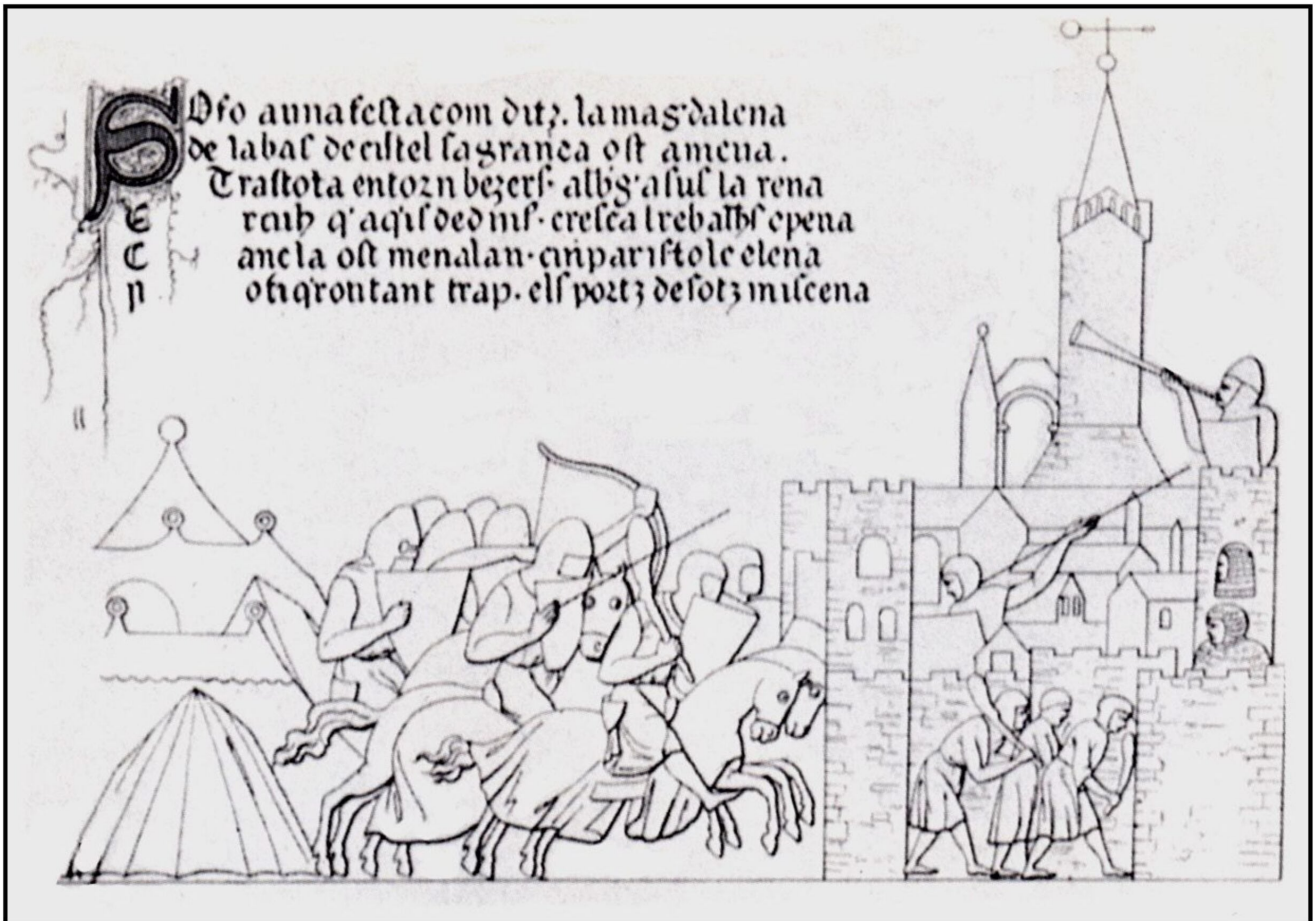 SOfo aunafestacom ditz. lamag'dalena
de labas decistel sagranda ost amena.
Trastota entorn bezers· alb'g'asus la rena
E rcuh q'aq'is dedins· cresca trebalhs epena
C anc la ost menalau· cui paris tolc elena
N ofiq'ron tant trap· els portz desotz miscena